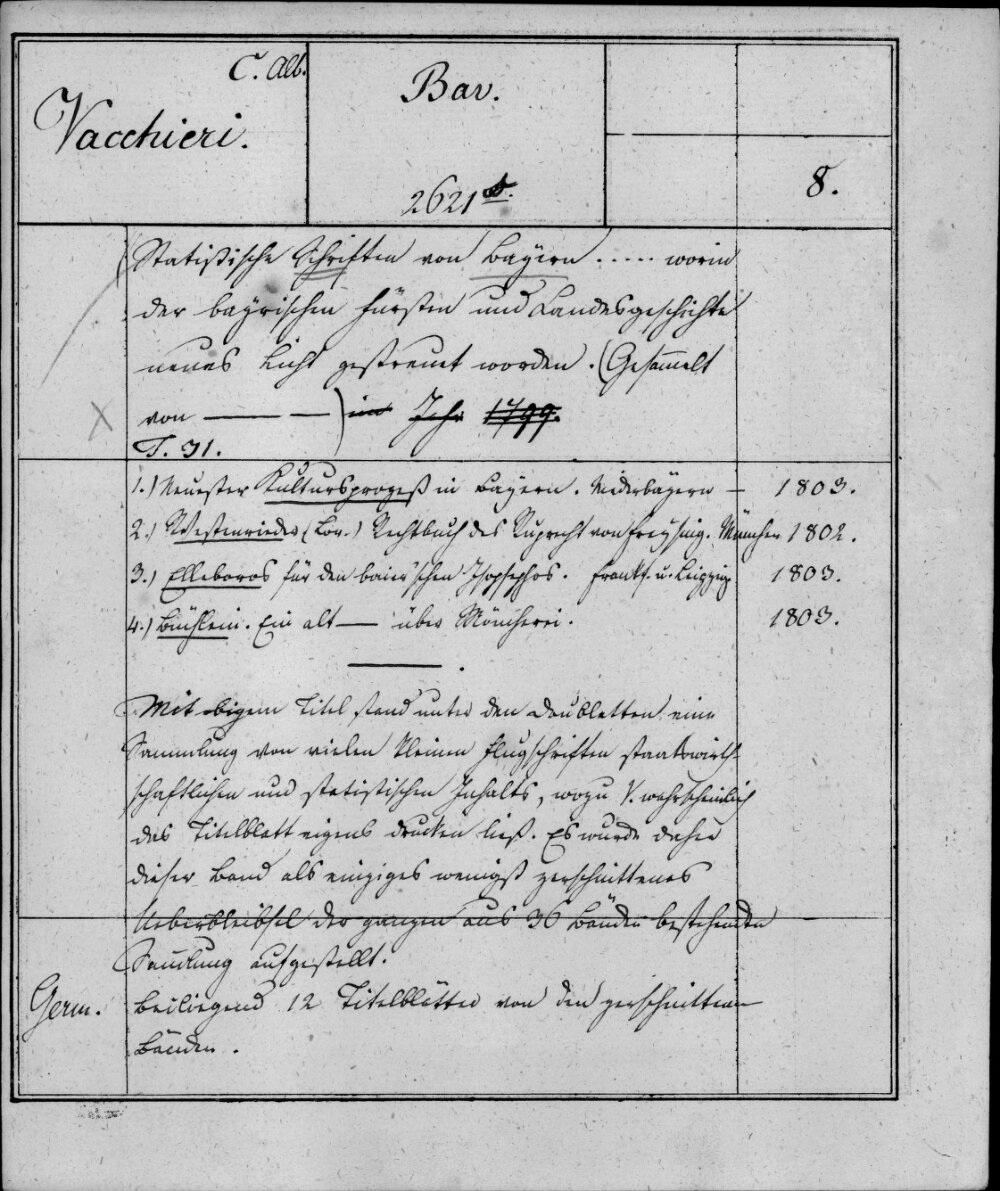 C. Alb.
Vacchieri.
Bav.
2621
8.
Statistische Schriften von Bayern ..... worin
der bayrischen Fürsten und Landesgeschichte
neues Licht gestreuet worden. (Gesam̄elt
von ——— —) im Jahr 1799.
T. 31.
1.) Neuester Kulturprozeß in Bayern. Niederbayern — 1803.
2.) Westenrieder (Lor.) Rechtbuch des Ruprecht von Freysing. München 1802.
3.) Elleboros für den baier'schen Isopsephos. Frankf. u. Leipzig 1803.
4.) Büchlein. Ein alt — über Möncherei. 1803.
Mit obigem Titel stand unter den Doubletten eine
Sammlung von vielen kleinen Flugschriften staatswirth-
schaftlichen und statistischen Inhalts, wozu V. wahrscheinlich
das Titelblatt eigens drucken ließ. Es wurde daher
dieser Band als einziges wenigst zerschnittenes
Ueberbleibsel der ganzen aus 36 Bänden bestehenden
Sam̄lung aufgestellt.
Germ.
Beiliegend 12 Titelblätter von den zerschnittenen
Bänden.